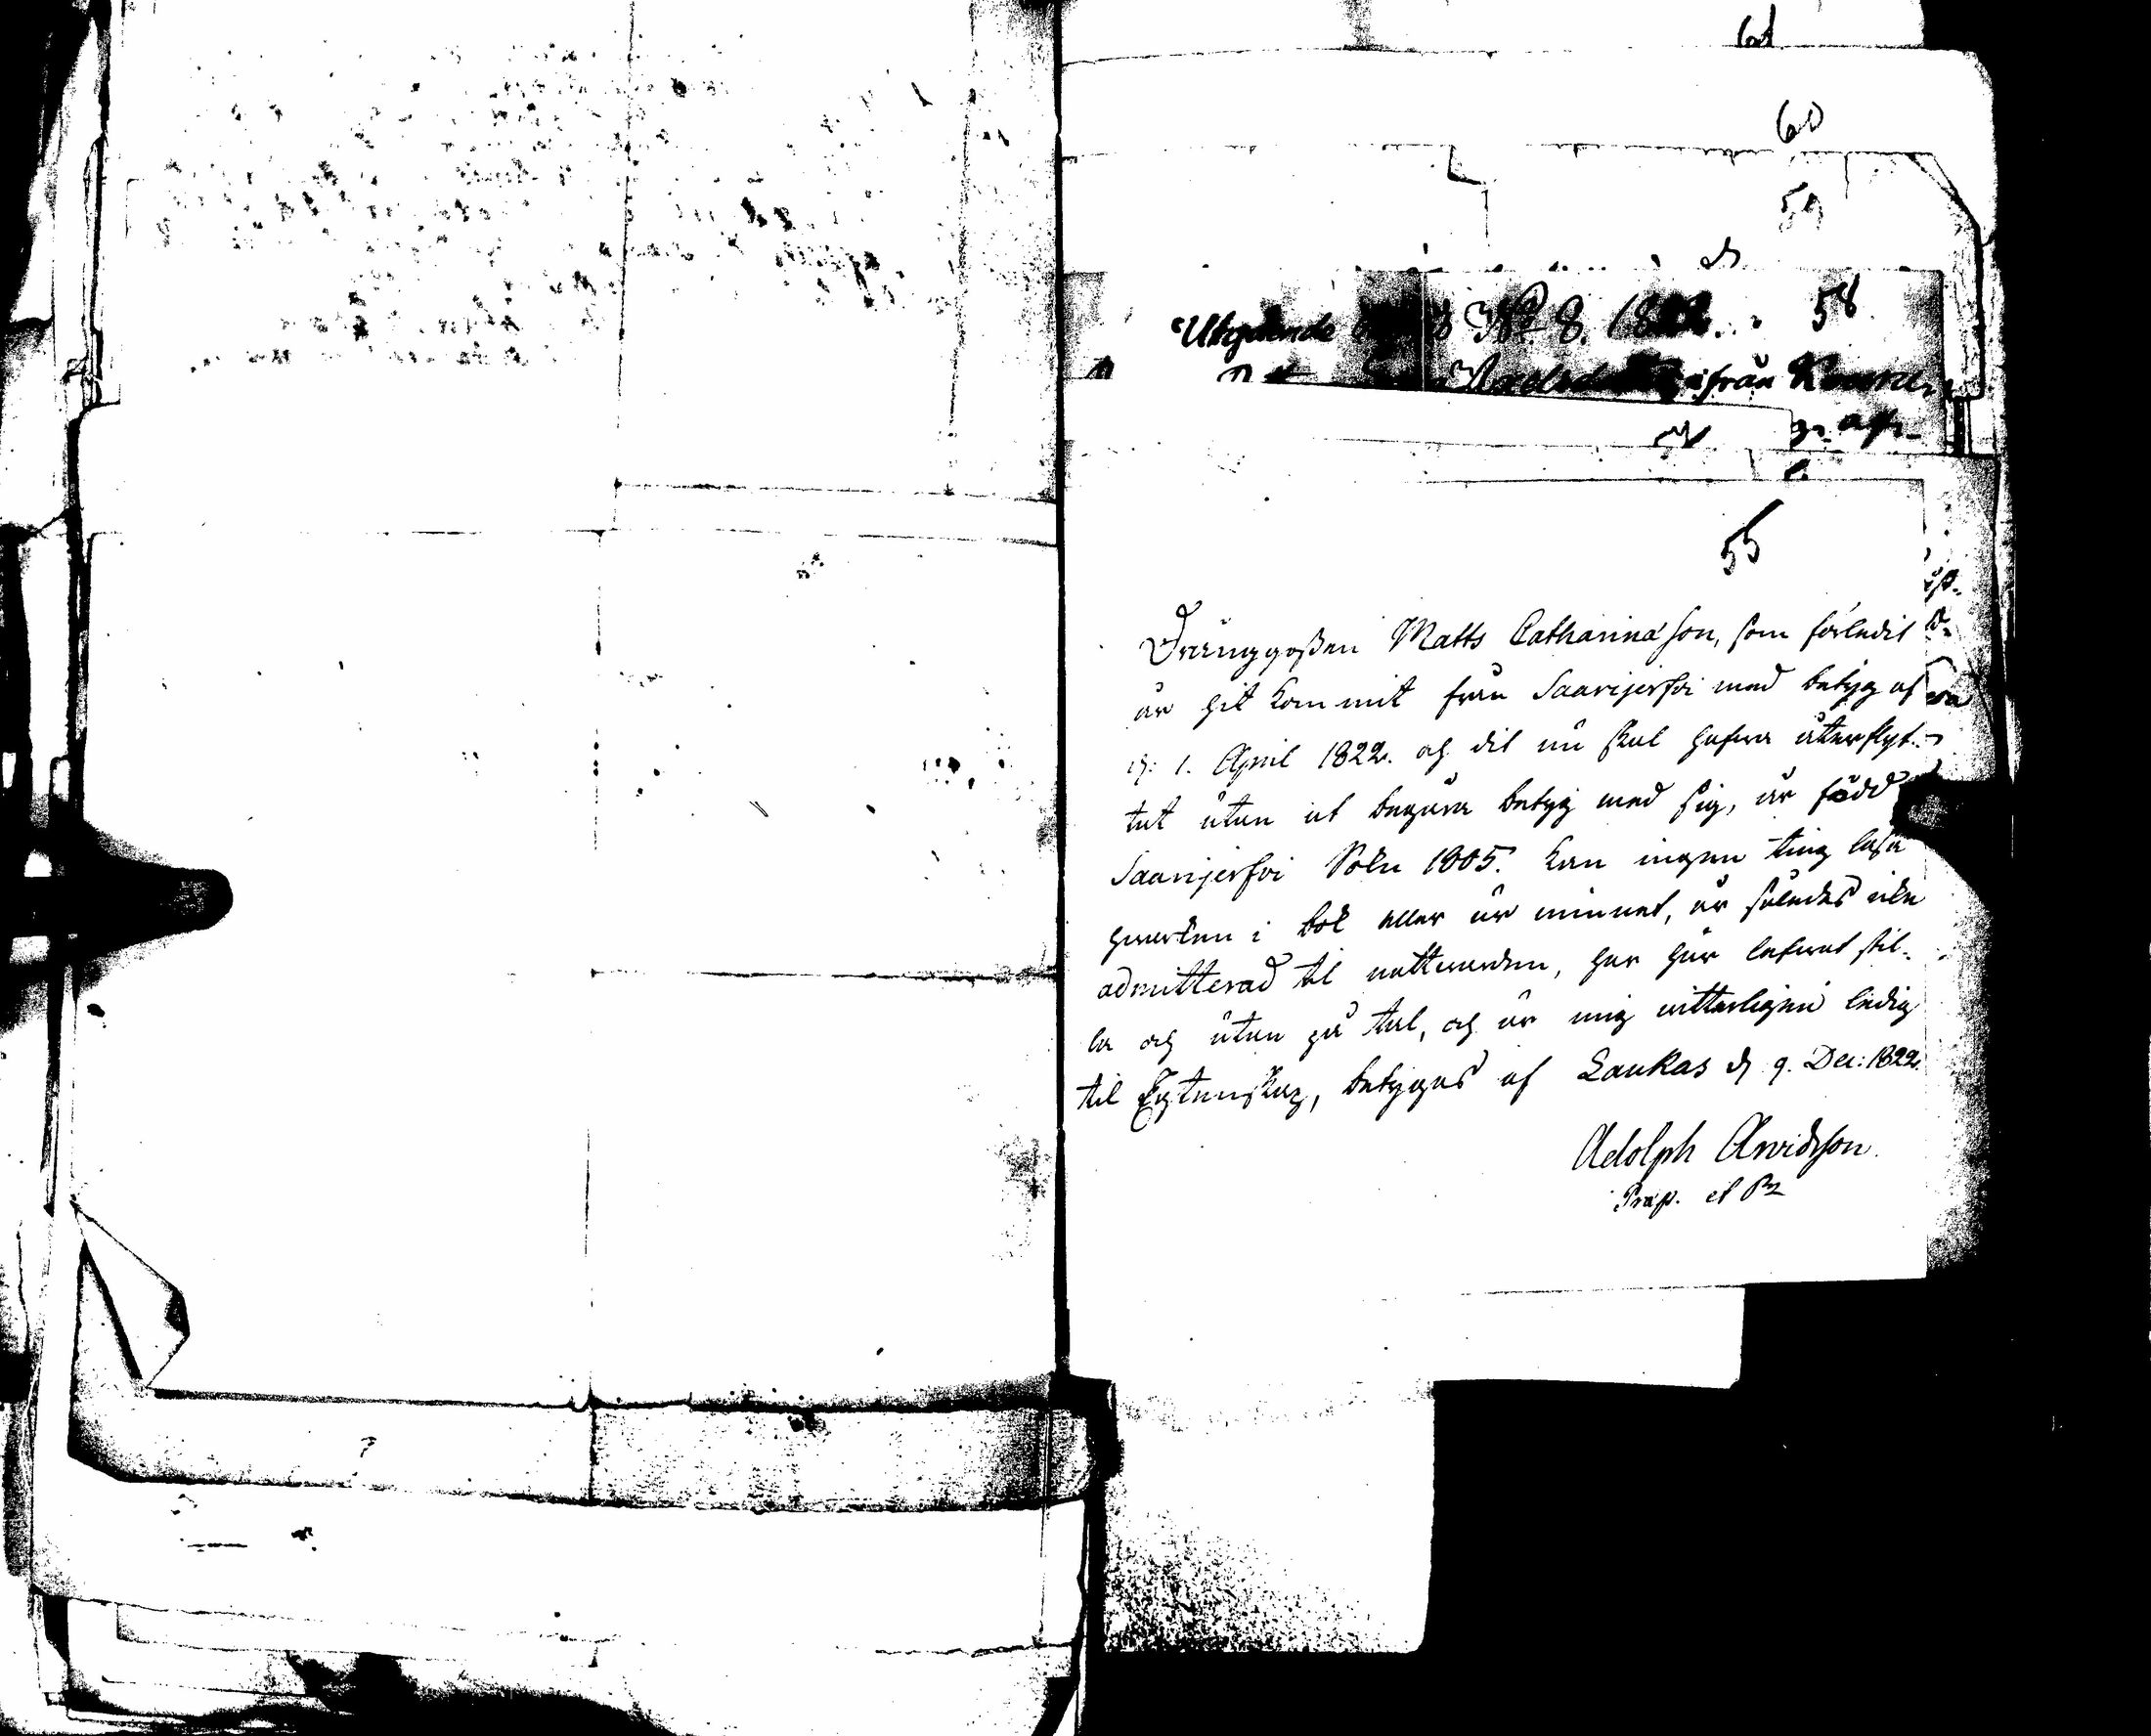 61
60
59
58
Utgående N:o 8. 18
ifrån
55
Dränggossen Matts Catharinæ son, som förledit
år hit kommit från Saarijerfvi med betyg af
d: 1. April 1822. och dit nu skal hafva återflyt-
tat utan at begära betyg med sig, är född
Saarijerfvi Sokn 1805. kan ingen ting läsa
hvarken i bok eller ur minnet, är således icke
admitterad til nattvarden, har här lefvat stil-
la och utan på tal, och är mig vitterligen ledig
til Egtenskap, betygas af Laukas d 9. Dec: 1822.
Adolph Arvidsson.
Præp. et